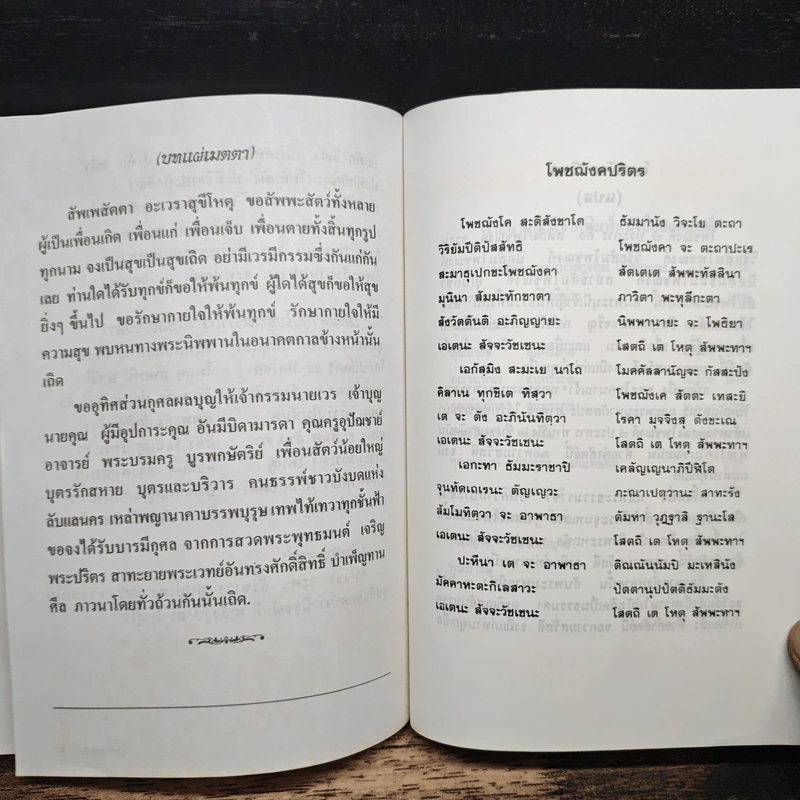 (บทแผ่เมตตา)
สัพเพสัตตา อะเวราสุขีโหตุ ขอสัพพะสัตว์ทั้งหลาย
ผู้เป็นเพื่อนเกิด เพื่อนแก่ เพื่อนเจ็บ เพื่อนตายทั้งสิ้นทุกรูป
ทุกนาม จงเป็นสุขเป็นสุขเถิด อย่ามีเวรมีกรรมซึ่งกันแก่กัน
เลย ท่านใดได้รับทุกข์ก็ขอให้พ้นทุกข์ ผู้ใดได้สุขก็ขอให้สุข
ยิ่งๆ ขึ้นไป ขอรักษากายใจให้พ้นทุกข์ รักษากายใจให้มี
ความสุข พบหนทางพระนิพพานในอนาคตกาลข้างหน้านั้น
เถิด
ขออุทิศส่วนกุศลผลบุญให้เจ้ากรรมนายเวร เจ้าบุญ
นายคุณ ผู้มีอุปการะคุณ อันมีบิดามารดา คุณครูอุปัณชาย์
อาจารย์ พระบรมครู บูรพกษัตริย์ เพื่อนสัตว์น้อยใหญ่
บุตรรักสหาย บุตรและบริวาร คนธรรพ์ชาวบังบดแห่ง
ลับแลนคร เหล่าพญานาคาบรรพบุรุษ เทพไท้เทวาทุกชั้นฟ้า
ขอจงได้รับบารมีกุศล จากการสวดพระพุทธมนต์ เจริญ
พระปริตร สาทะยายพระเวทย์อันทรงศักดิ์สิทธิ์ บำเพ็ญทาน
ศีล ภาวนาโดยทั่วถ้วนกันนั้นเถิด.
โพชฌังคปริตร
โพชฌังโค สะติสังขาโต ธัมมานัง วิจะโย ตะถา
วิริยัมปีติปัสสัทธิ โพชฌังคา จะ ตะถาปะเร
สะมาธุเปกขะโพชฌังคา สัตเตเต สัพพะทัสสินา
มุนินา สัมมะทักขาตา ภาวิตา พะหุลีกะตา
สังวัตตันติ อะภิญญายะ นิพพานายะ จะ โพธิยา
เอเตนะ สัจจะวัชเชนะ โสตถิ เต โหตุ สัพพะทาฯ
เอกัสมิง สะมะเย นาโถ โมคคัลลานัญจะ กัสสะปัง
คิลาเน ทุกขิเต ทิสวา โพชฌังเค สัตตะ เทสะยิ
เต จะ ตัง อะภินันทิตวา โรคา มุจจิงสุ ตังขะเณ
เอเตนะ สัจจะวัชเชนะ โสตถิ เต โหตุ สัพพะทาฯ
เอกะทา ธัมมะราชาปิ เคลัญเญนาภิปีฬิโต
จุนทัตเถเรนะ ตัญเญวะ ภะณาเปตวานะ สาทะรัง
สัมโมทิตวา จะ อาพาธา ตัมหา วุฏฐาสิ ฐานะโส
เอเตนะ สัจจะวัชเชนะ โสตถิ เต โหตุ สัพพะทาฯ
ปะหีนา เต จะ อาพาธา ติณณันนัมปิ มะเหสินัง
มัคคาหะตะกิเลสาวะ ปัตตานุปปัตติธัมมะตัง
เอเตนะ สัจจะวัชเชนะ โสตถิ เต โหตุ สัพพะทาฯ